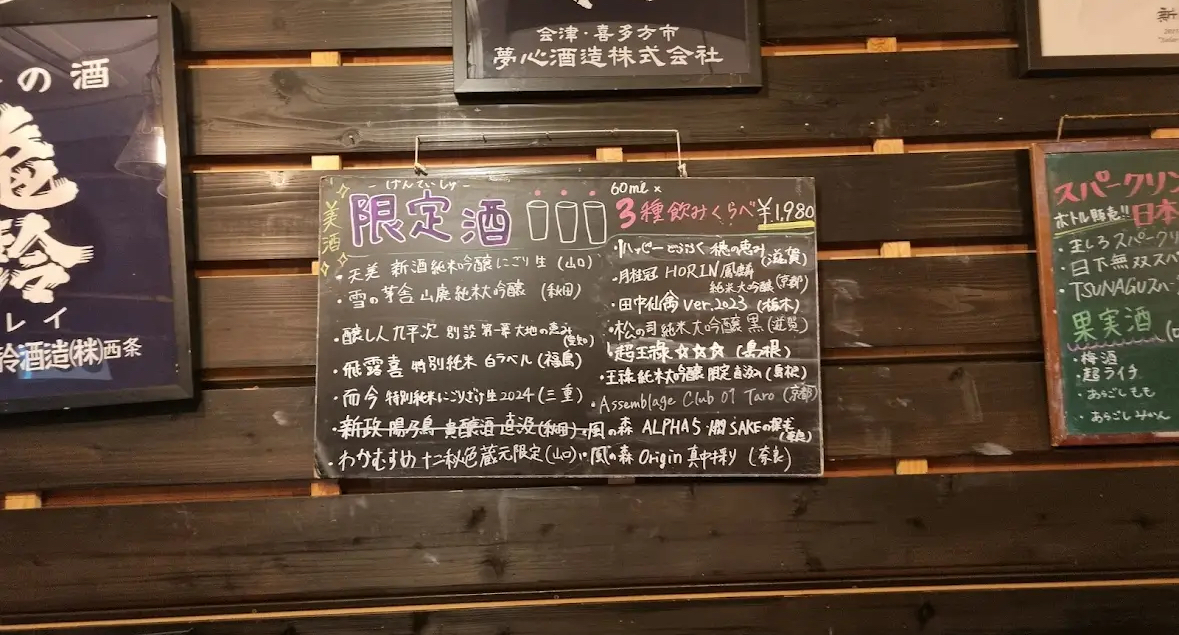 の酒
レイ
酒造㈱西条
会津・喜多方市
夢心酒造株式会社
新
美酒
げんていしゅ
限定酒
60ml×
3種飲みくらべ ¥1,980
・天美 新酒純米吟醸にごり生 (山口)
・雪の茅舎 山廃純米大吟醸 (秋田)
・醸し人九平次 別誂 第一章 大地の恵み (愛知)
・飛露喜 特別純米 白ラベル (福島)
・而今 特別純米にごりざけ生2024 (三重)
・新政 陽乃鳥 貴醸酒 直汲 (秋田)
・わかむすめ 十二秘色蔵元限定 (山口)
・ハッピーどぶろく 穂の恵み (滋賀)
・月桂冠 HORIN 鳳麟 純米大吟醸 (京都)
・田中仙禽 Ver.2023 (栃木)
・松の司 純米大吟醸 黒 (滋賀)
・超王祿 ☆☆☆ (島根)
・王祿 純米大吟醸 限定直汲 (島根)
・Assemblage Club 01 Taro (京都)
・風の森 ALPHA5 燗SAKEの (奈良)
・風の森 Origin 真中採り (奈良)
スパークリン
ボトル販売!! 日本
・王しろスパークリ
・日下無双スパ
・TSUNAGUスパー
果実酒
・梅酒
・超ライチ
・あらごしもも
・あらごしみかん